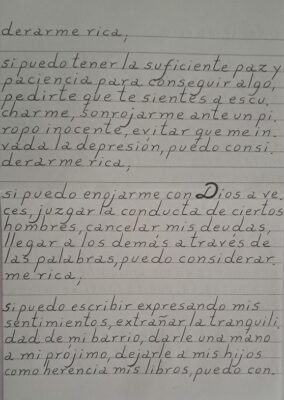 derarme rica;
si puedo tener la suficiente paz y
paciencia para conseguir algo,
pedirte que te sientes a escu,
charme, sonrojarme ante un pi,
ropo inocente, evitar que me in,
vada la depresión, puedo consi,
derarme rica;
si puedo enojarme con Dios a ve,
ces, juzgar la conducta de ciertos
hombres, cancelar mis deudas,
llegar a los demás a través de
las palabras, puedo considerar,
me rica;
si puedo escribir expresando mis
sentimientos, extrañar la tranquili,
dad de mi barrio, darle una mano
a mi prójimo, dejarle a mis hijos
como herencia mis libros, puedo con,